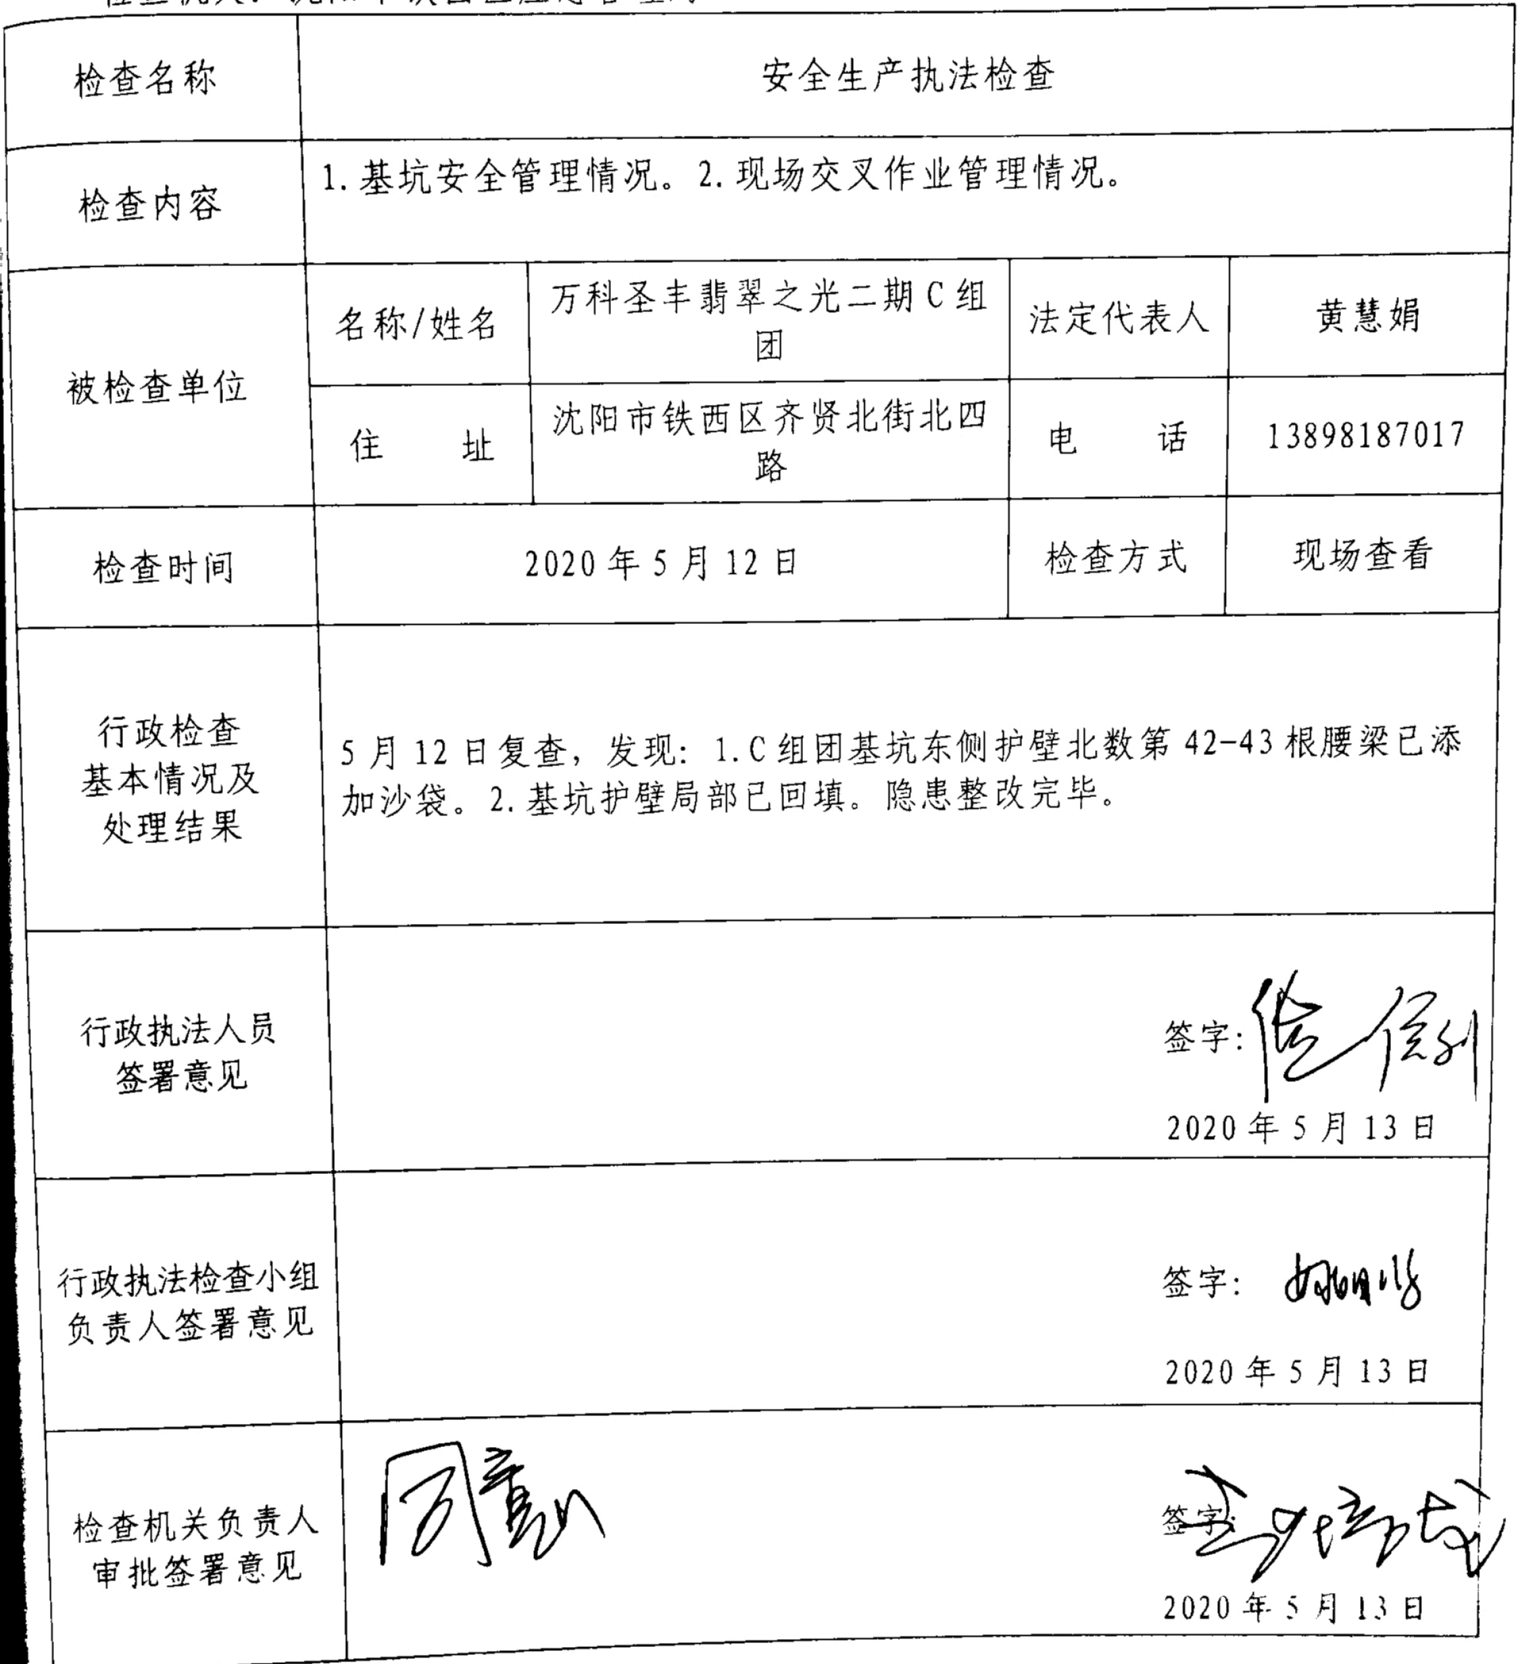 检查名称
安全生产执法检查
检查内容
1.基坑安全管理情况。2.现场交叉作业管理情况。
被检查单位
名称/姓名
万科圣丰翡翠之光二期C组
团
法定代表人
黄慧娟
住 址
沈阳市铁西区齐贤北街北四
路
电 话
13898187017
检查时间
2020年5月12日
检查方式
现场查看
行政检查
基本情况及
处理结果
5月12日复查，发现：1.C组团基坑东侧护壁北数第42-43根腰梁已添
加沙袋。2.基坑护壁局部已回填。隐患整改完毕。
行政执法人员
签署意见
签字：
2020年5月13日
行政执法检查小组
负责人签署意见
签字：
2020年5月13日
检查机关负责人
审批签署意见
同意
签字：
2020年5月13日